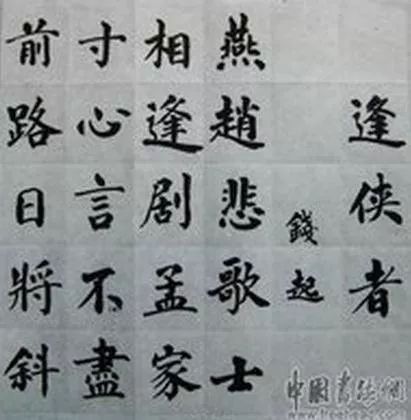 逢侠者
錢起
燕趙悲歌士
相逢剧孟家
寸心言不盡
前路日將斜
中國書法網